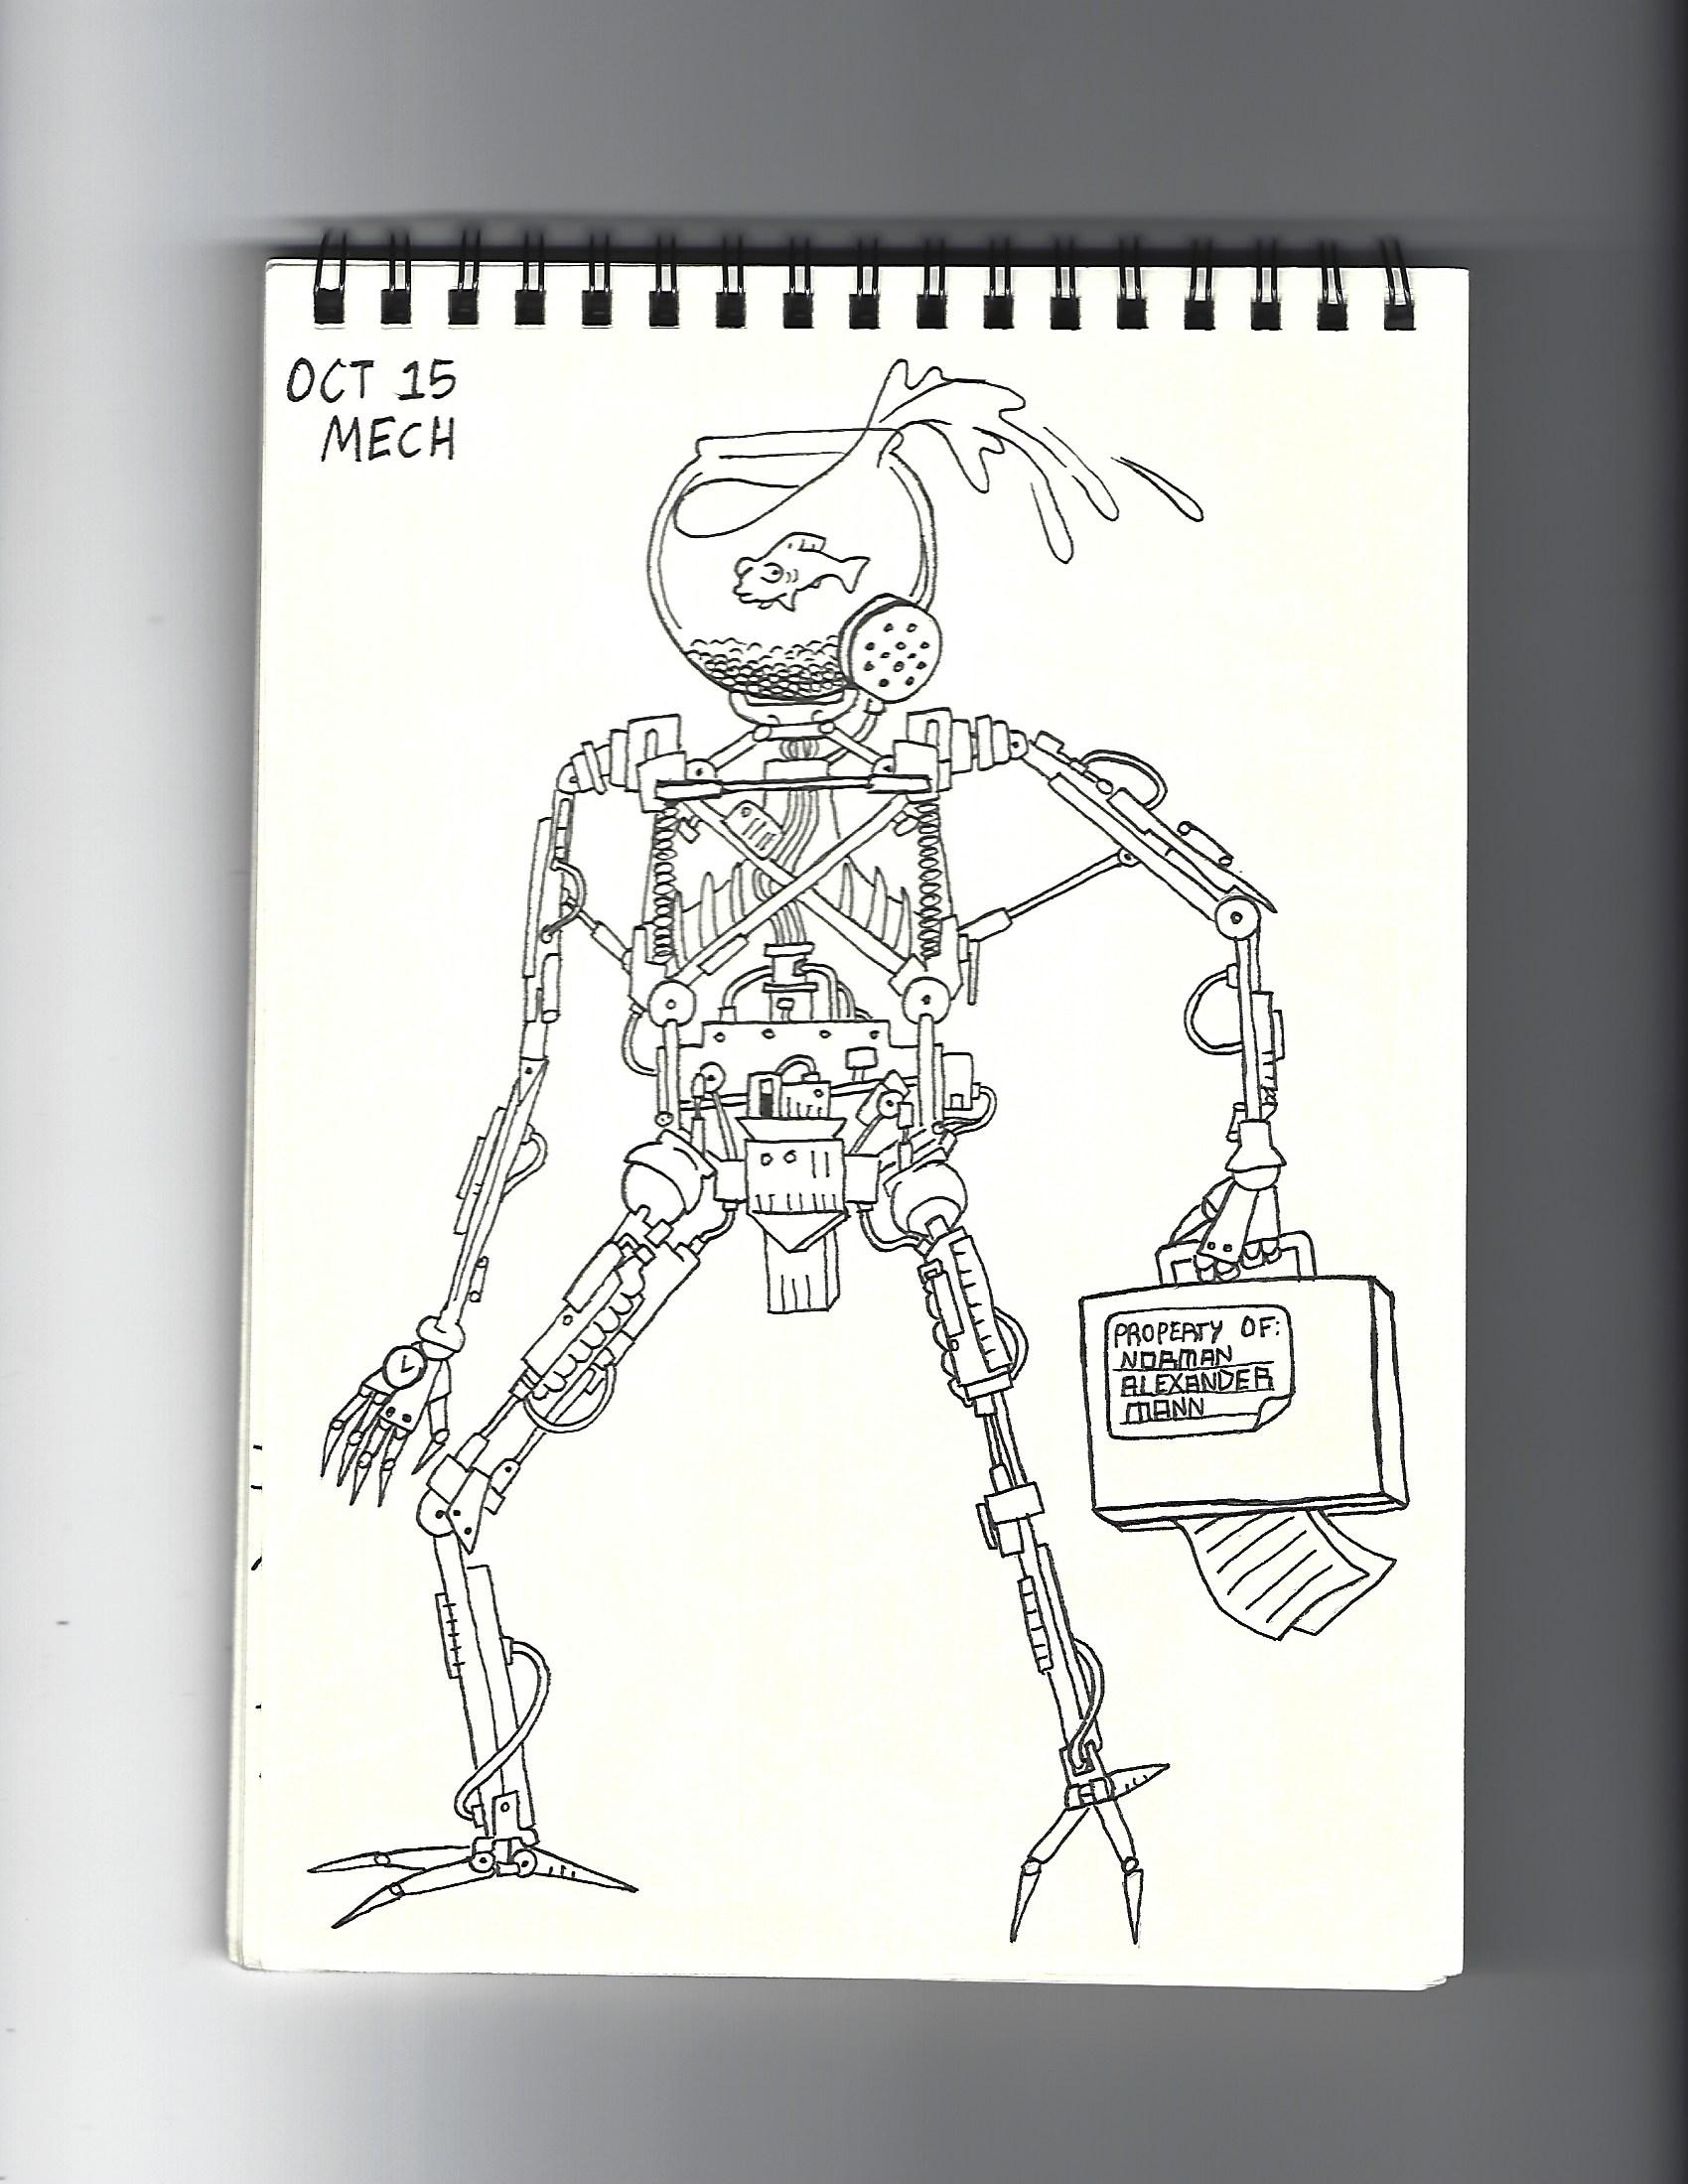 OCT 15
MECH
PROPERTY OF:
NORMAN
ALEXANDER
MANN